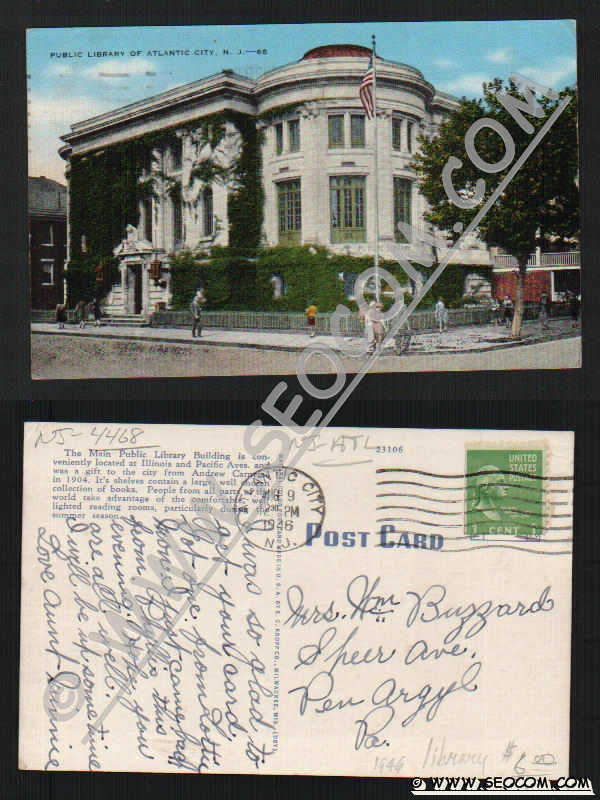 PUBLIC LIBRARY OF ATLANTIC CITY, N. J.—65
© WWW.SEOCOM.COM
NJ-4468
NJ-ATL
The Main Public Library Building is con-
veniently located at Illinois and Pacific Aves. and
was a gift to the city from Andrew Carnegie
in 1904. It's shelves contain a large, well chosen
collection of books. People from all parts of the
world take advantage of the comfortable, well
lighted reading rooms, particularly during the
summer season.
23106
CITY
9
PM
1946
N.J.
UNITED STATES
POSTAGE
1 CENT 1
POST CARD
was so glad to
get your card.
Got one from Lottie
too. I just came
from this
evening. Hope you
are all well.
I will be up some time
Love Aunt Annie
Mrs. Wm Buzzard
Speer Ave.
Pen Argyl
Pa.
1946 library $6.00
© WWW.SEOCOM.COM